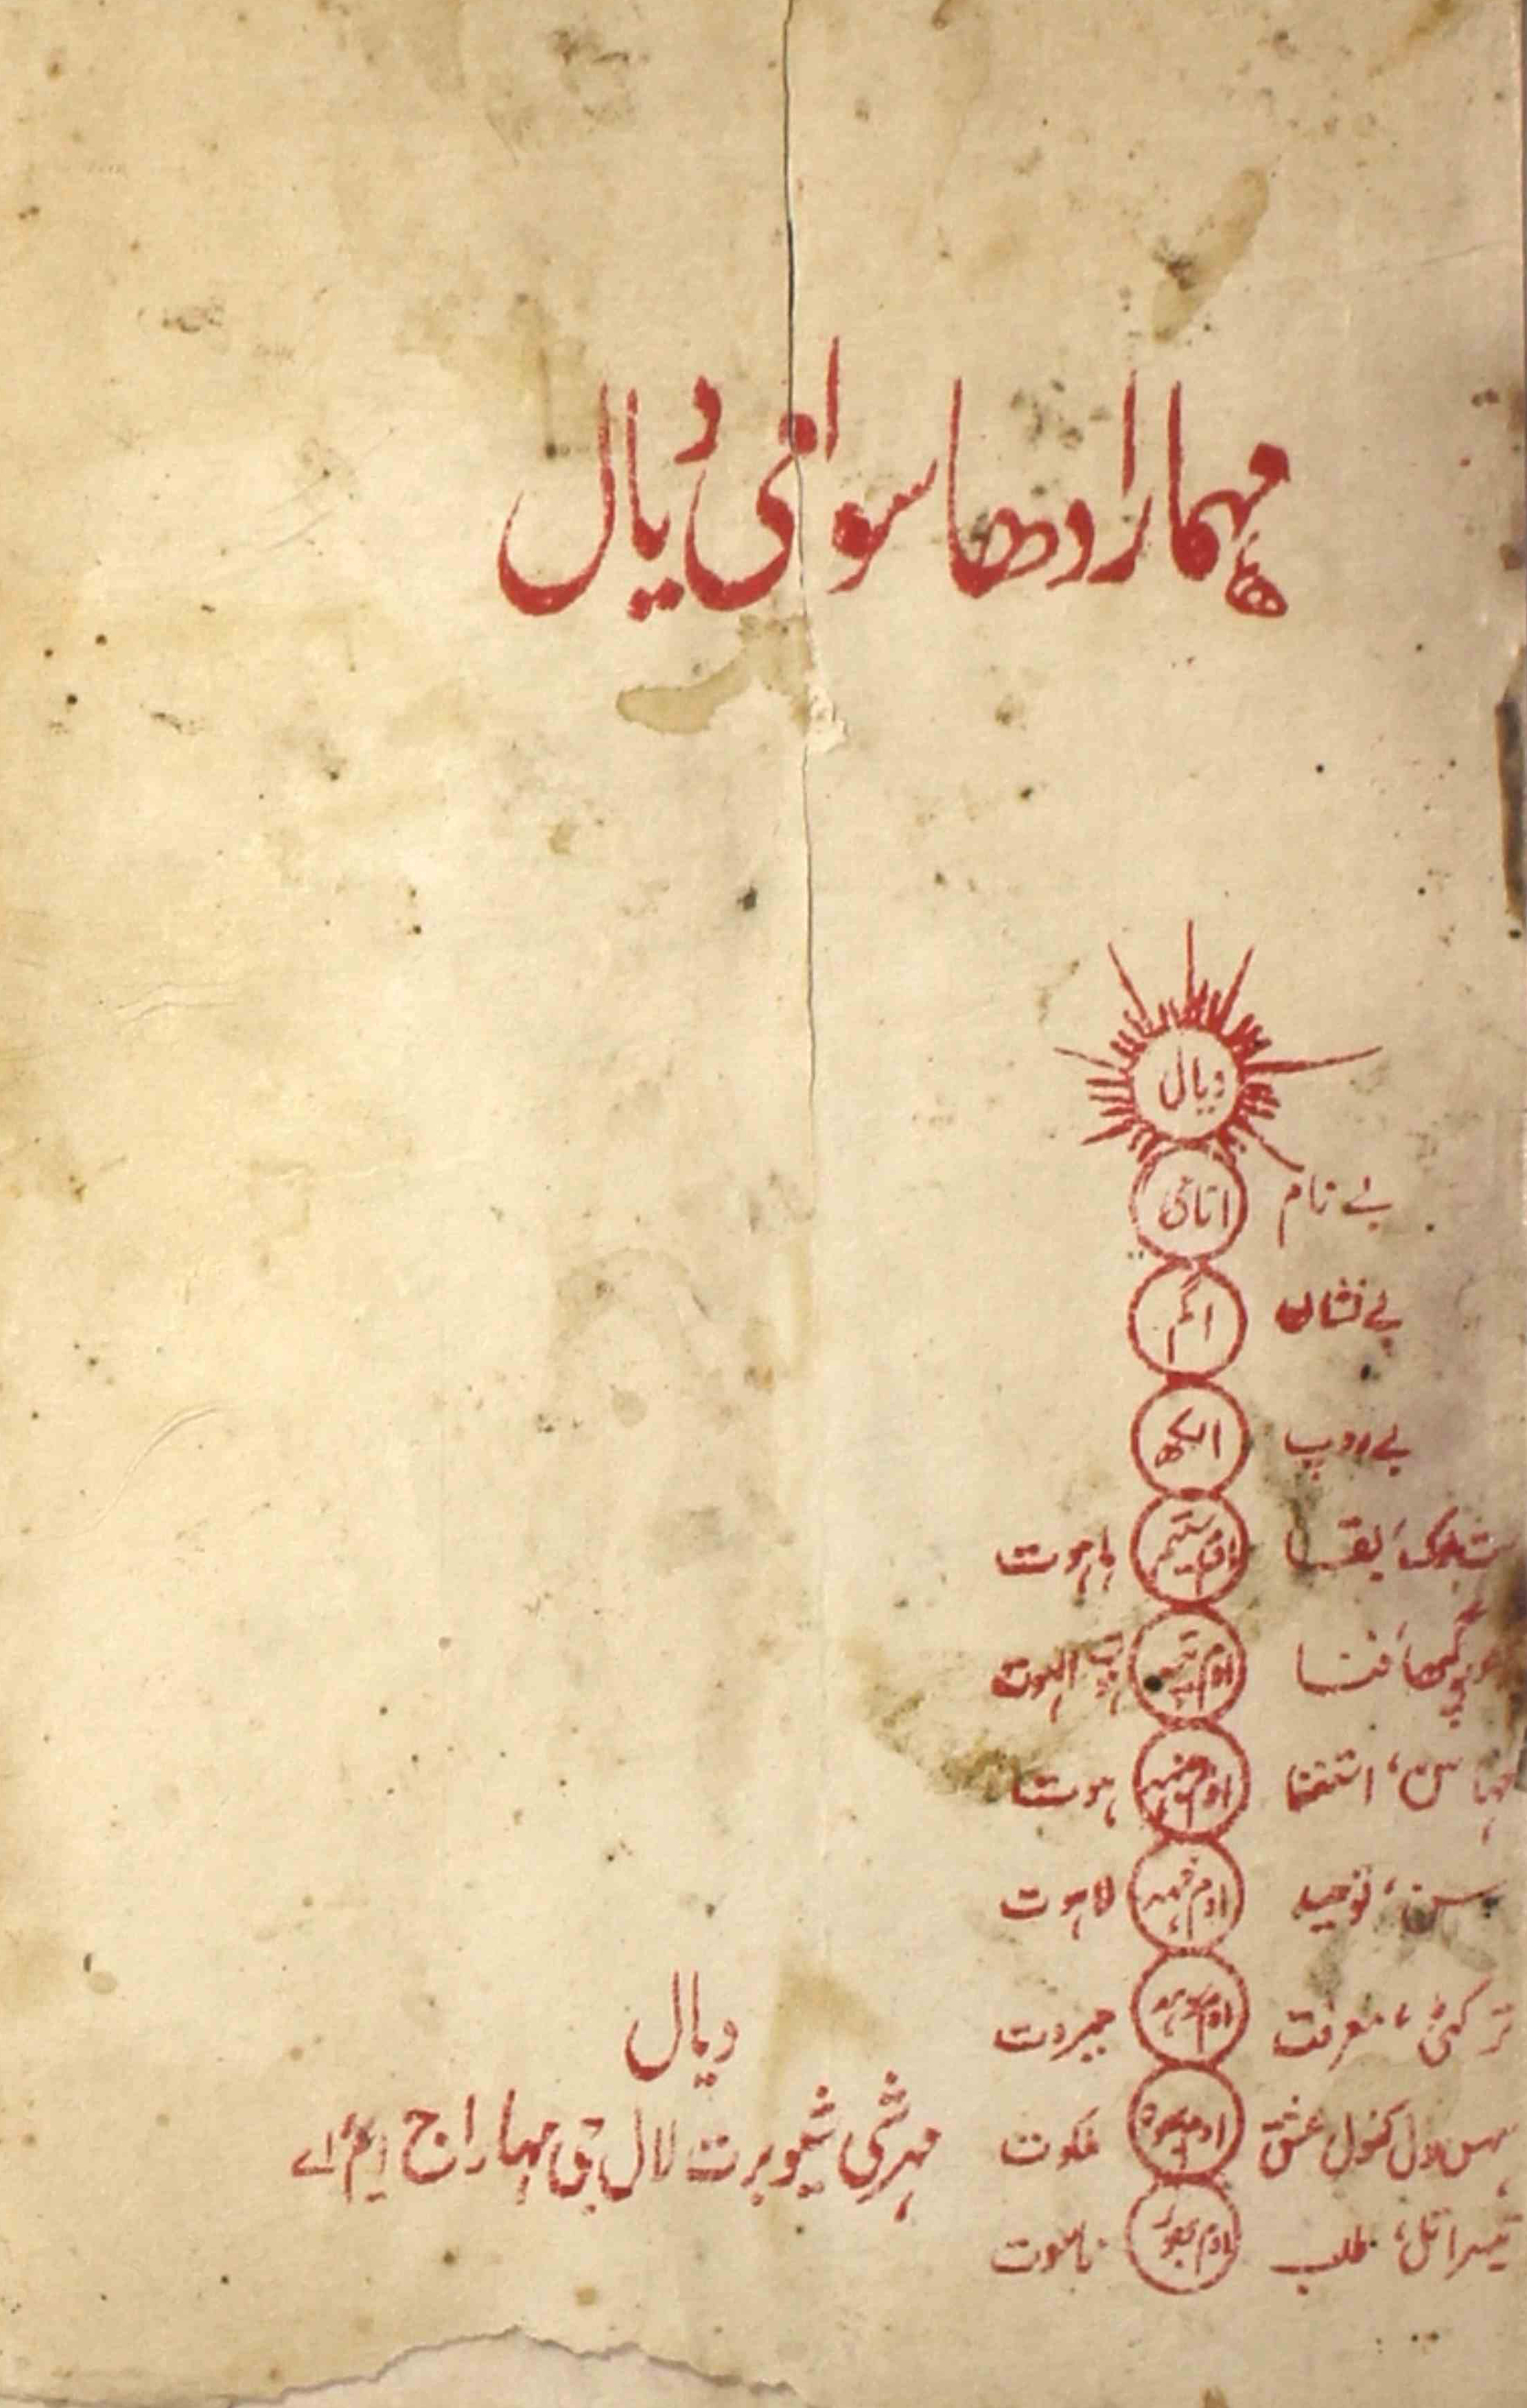 مہما رادھا سوامی دیال
دیال
بے نام انامی
بے نشان اگم
بے روپ الکھ
ست لوک، بقا اوم ستیم ہاہوت
گپھا، فنا اوم تپہ
مہا سن، استغنا اوم جنہ ہوت
سن، توحید اوم مہہ لاہوت
ترکٹی، معرفت اوم سوہ جبروت
سہس دل کنول عشق اوم بھوہ ملکوت
تیسرا تل، طلب اوم بھور ناسوت
دیال
مہرشی شیوبرت لال جی مہاراج ایم اے